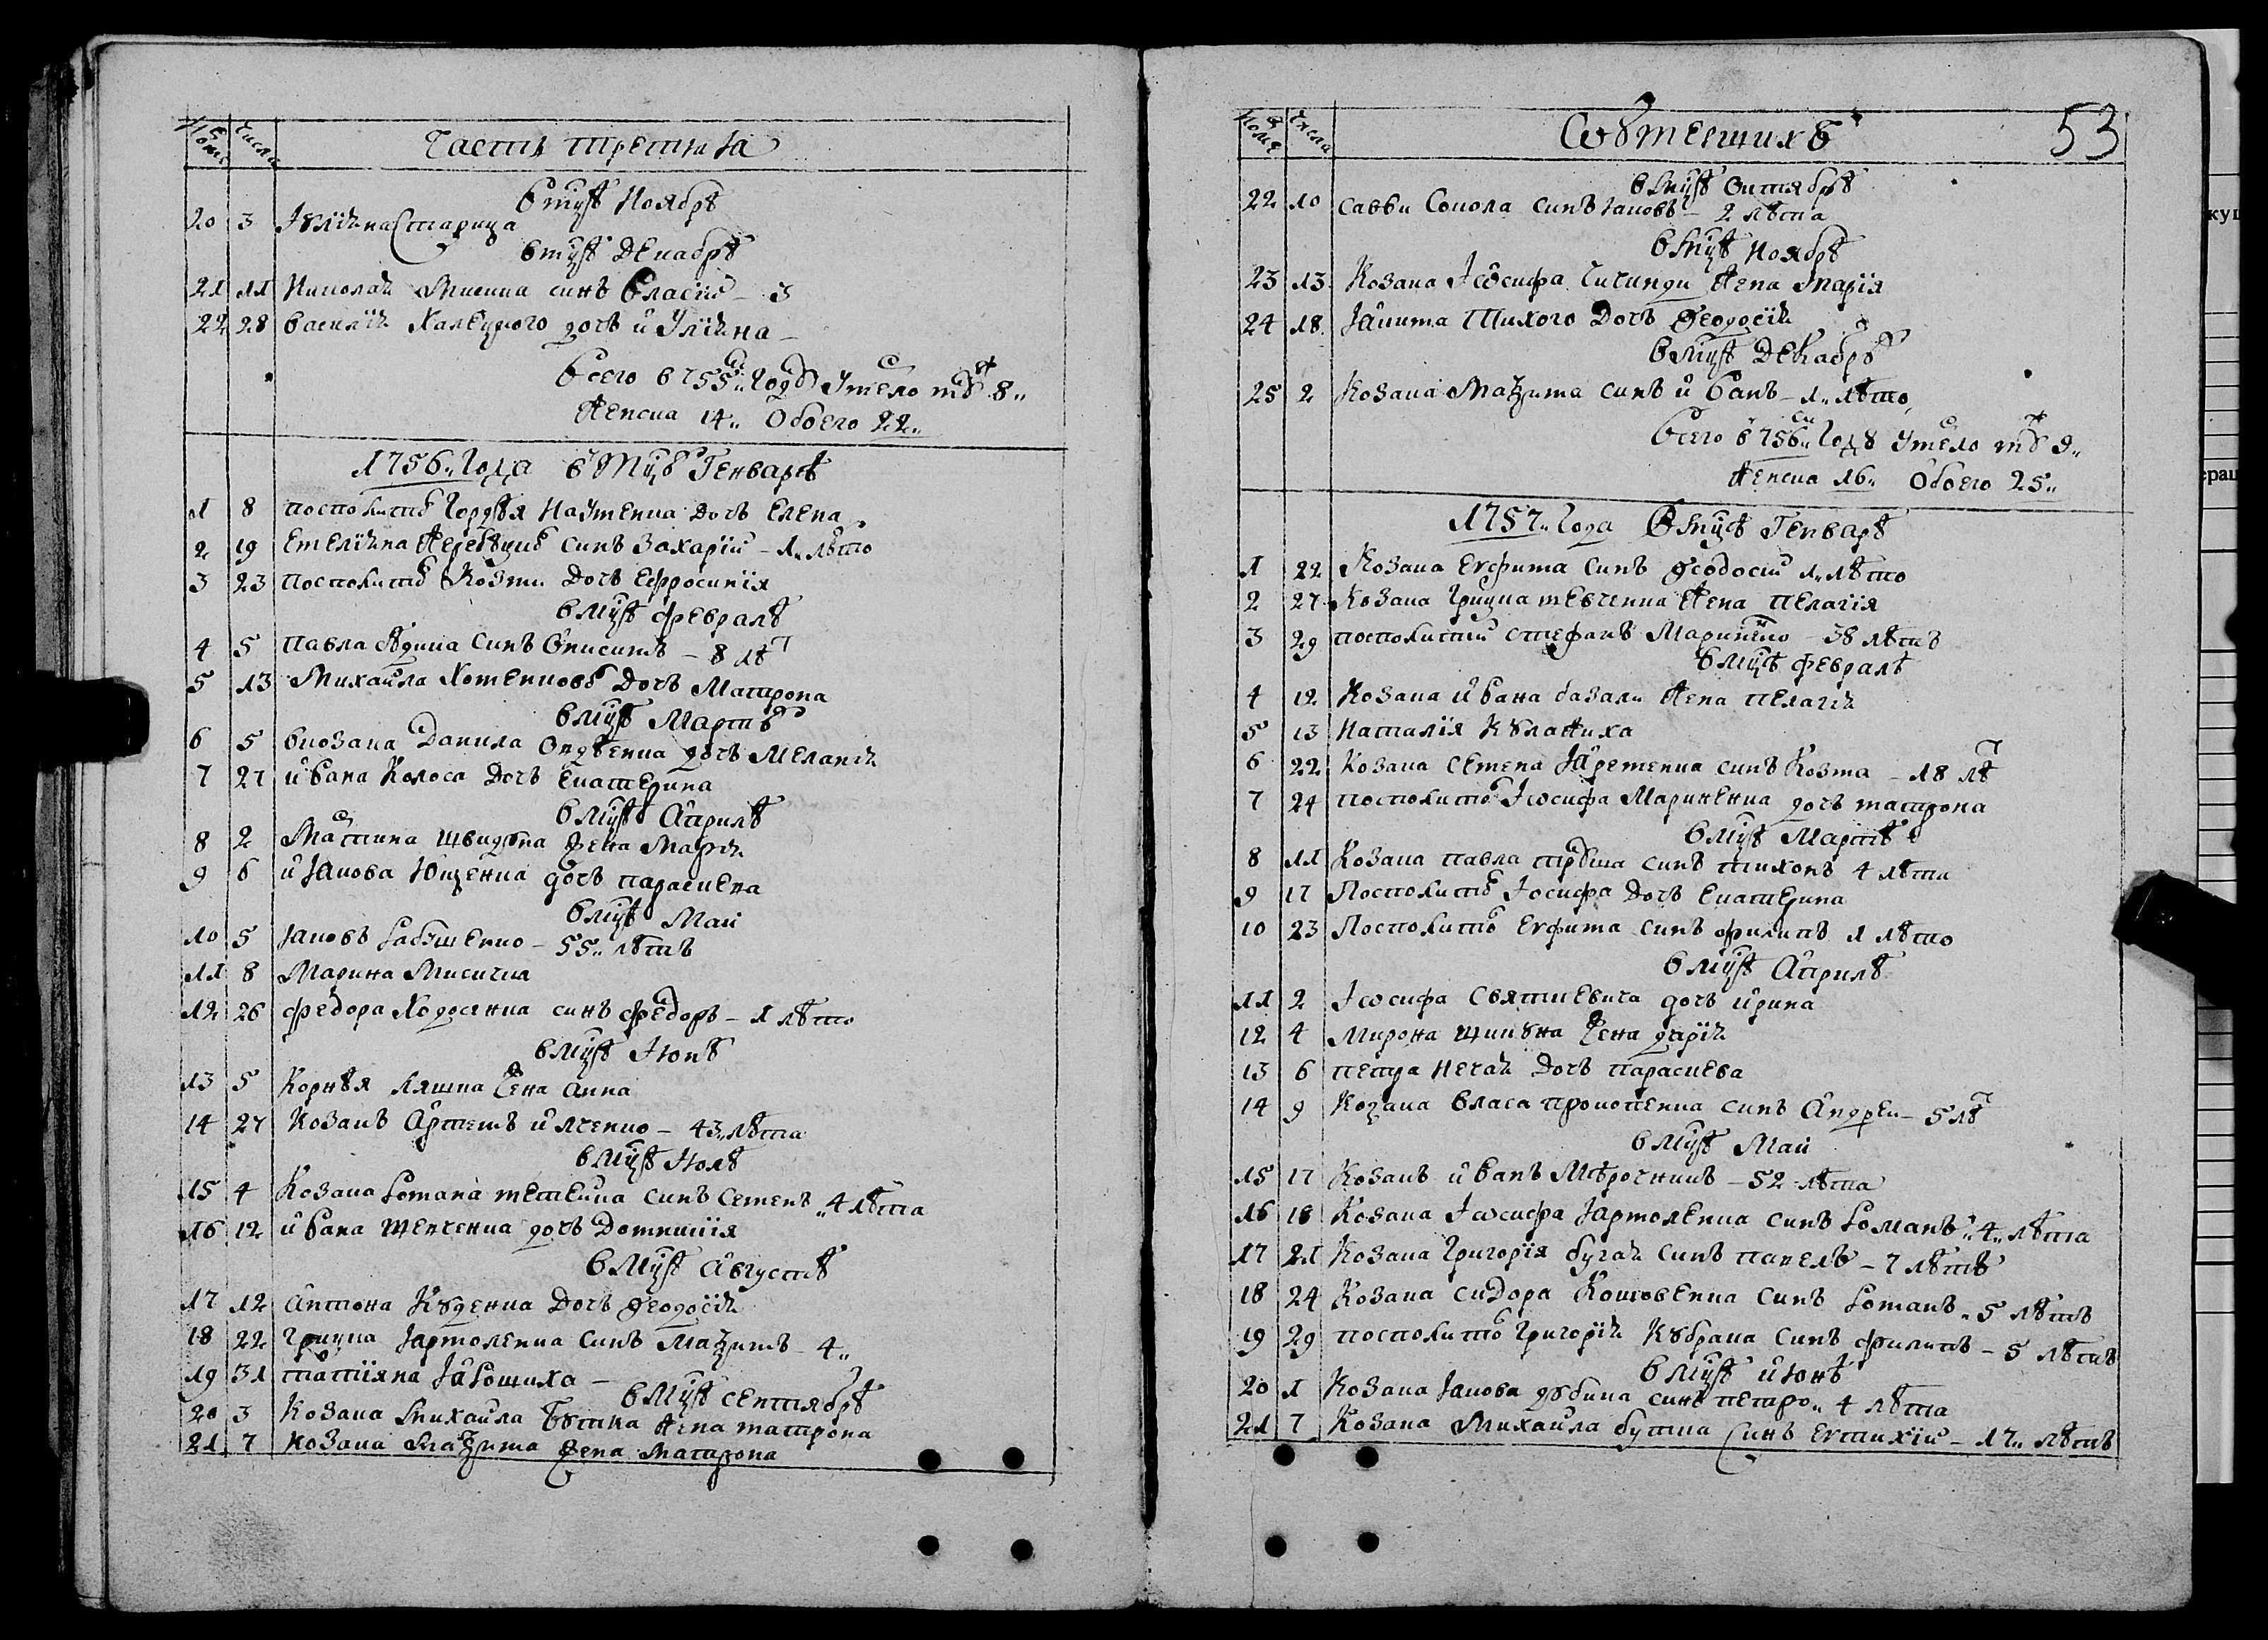 Части третия
в мцѣ Ноябрѣ
20 3 Іулiяна Старица
в мцѣ Декабрѣ
21 11 Николая син Власий – 3
22 28 Василія дочъ Улияна –
Всего в 755 году Умерло муж 8
женска 14 Обоего 22
1756 года в мцѣ Генварѣ
1 8 посполит Гордѣя Науменка дочъ Елена
2 19 син Захарий – 1 лѣто
3 23 посполит Козми дочъ Ефросинія
в мцѣ Февралѣ
4 5 Павла син Онисим – 8 лѣт
5 13 Михайла дочъ Матрона
в мцѣ Мартѣ
6 5 Козака Данила дочъ Меланія
7 27 Ивана Колоса дочъ Екатерина
в мцѣ Априлѣ
8 2 жена Марія
9 6 Иякова Ющенка дочъ Параскева
в мцѣ Маи
10 5 Яковъ Рабушенко – 55 лѣтъ
11 8 Марина Мисична
12 26 Федора Ходосенка синъ Федоръ – 1 лѣто
в мцѣ Іюнѣ
13 5 Корнѣя Ляшка жена Анна
14 27 Козакъ Артемъ Илченко – 43 лѣта
в мцѣ Іюлѣ
15 4 Козака Романа синъ Семенъ 4 лѣта
16 12 Ивана Шевченка дочъ Домникія
в мцѣ Августѣ
17 12 Антона дочъ Феодосія
18 22 Грицка Ярмоленка синъ Маѯимъ – 4
19 31 Татіяна –
в мцѣ Септябрѣ
20 3 Козака Михайла жена Матрона
21 7 Козака Маѯима жена Матрона
Собмершихъ
53
в мцѣ Октябрѣ
22 10 Савви Сокола синъ Яковъ – 2 лѣта
в мцѣ Ноябрѣ
23 13 Козака Іосифа жена Марія
24 18 Тихого дочъ Феодосія
в мцѣ Декабрѣ
25 2 Козака Маѯима синъ Иванъ – 1 лѣто
Всего в 756 году Умерло муж 9
женска 16 Обоего 25
1757 года в мцѣ Генварѣ
1 22 Козака Ефима синъ Феодосий 1 лѣто
2 27 Козака Грицка Шевченка жена Пелагія
3 29 посполитий Стефанъ Мариненко – 38 лѣтъ
в мцѣ Февралѣ
4 12 Козака Ивана жена Пелагія
5 13 Наталія
6 22 Козака Семена Яременка синъ Козма – 18 лѣт
7 24 посполит Іосифа Мариненка дочъ Матрона
в мцѣ Мартѣ
8 11 Козака Павла синъ Тихонъ 4 лѣта
9 17 Посполит Іосифа дочъ Екатерина
10 23 Посполит Ефима синъ Филипъ 1 лѣто
в мцѣ Априлѣ
11 2 Іосифа дочъ Ирина
12 4 Мирона жена Дарія
13 6 Петра Нечая дочъ Параскева
14 9 Козака Власа Прокопенка синъ Андреи – 5 лѣт
в мцѣ Маи
15 17 Козакъ Иванъ Мѣрочникъ – 52 лѣта
16 18 Козака Іосифа Ярмоленка синъ Романъ 4 лѣта
17 21 Козака Григорія Бугая синъ Павелъ – 7 лѣтъ
18 24 Козака Сидора синъ Романъ 5 лѣтъ
19 29 посполит Григорія синъ Филипъ – 5 лѣтъ
в мцѣ Июнѣ
20 1 Козака Якова Дубина синъ Петро 4 лѣта
21 7 Козака Михайла синъ Евтихій – 17 лѣтъ